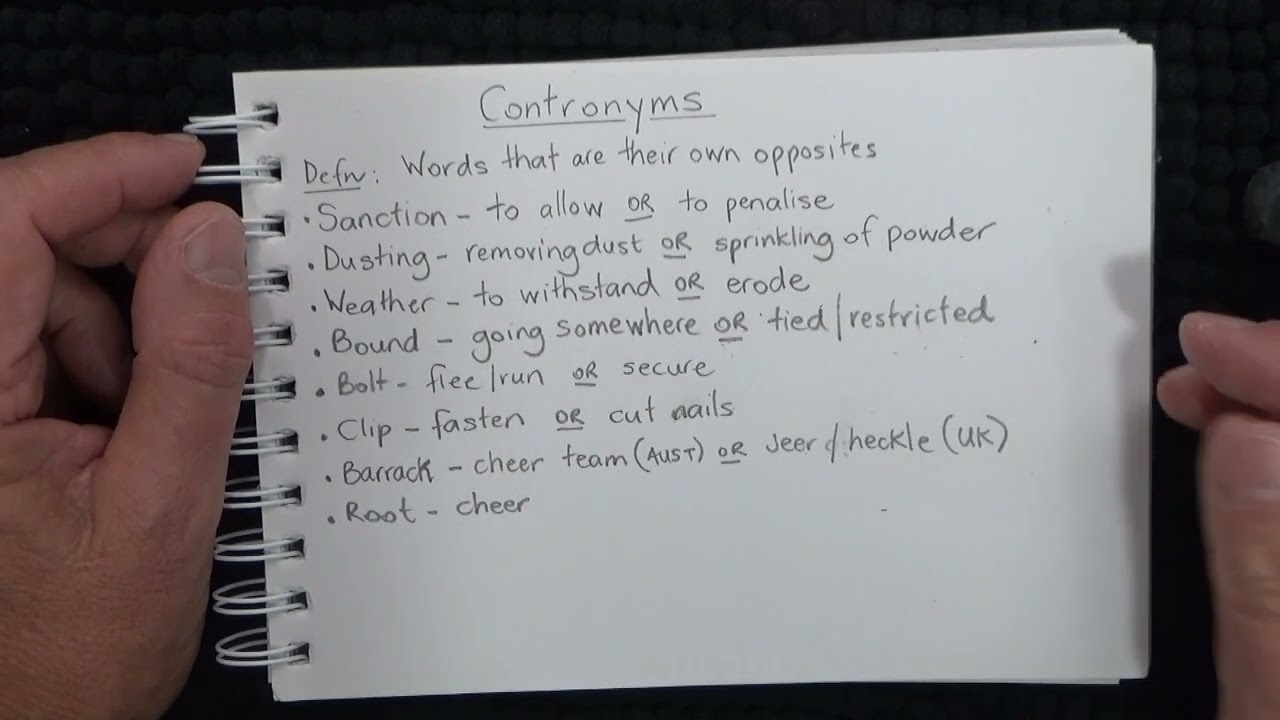 Contronyms
Defn: Words that are their own opposites
• Sanction - to allow OR to penalise
• Dusting - removing dust OR sprinkling of powder
• Weather - to withstand OR erode
• Bound - going somewhere OR tied/restricted
• Bolt - flee/run OR secure
• Clip - fasten OR cut nails
• Barrack - cheer team (AUST) OR Jeer/heckle (UK)
• Root - cheer